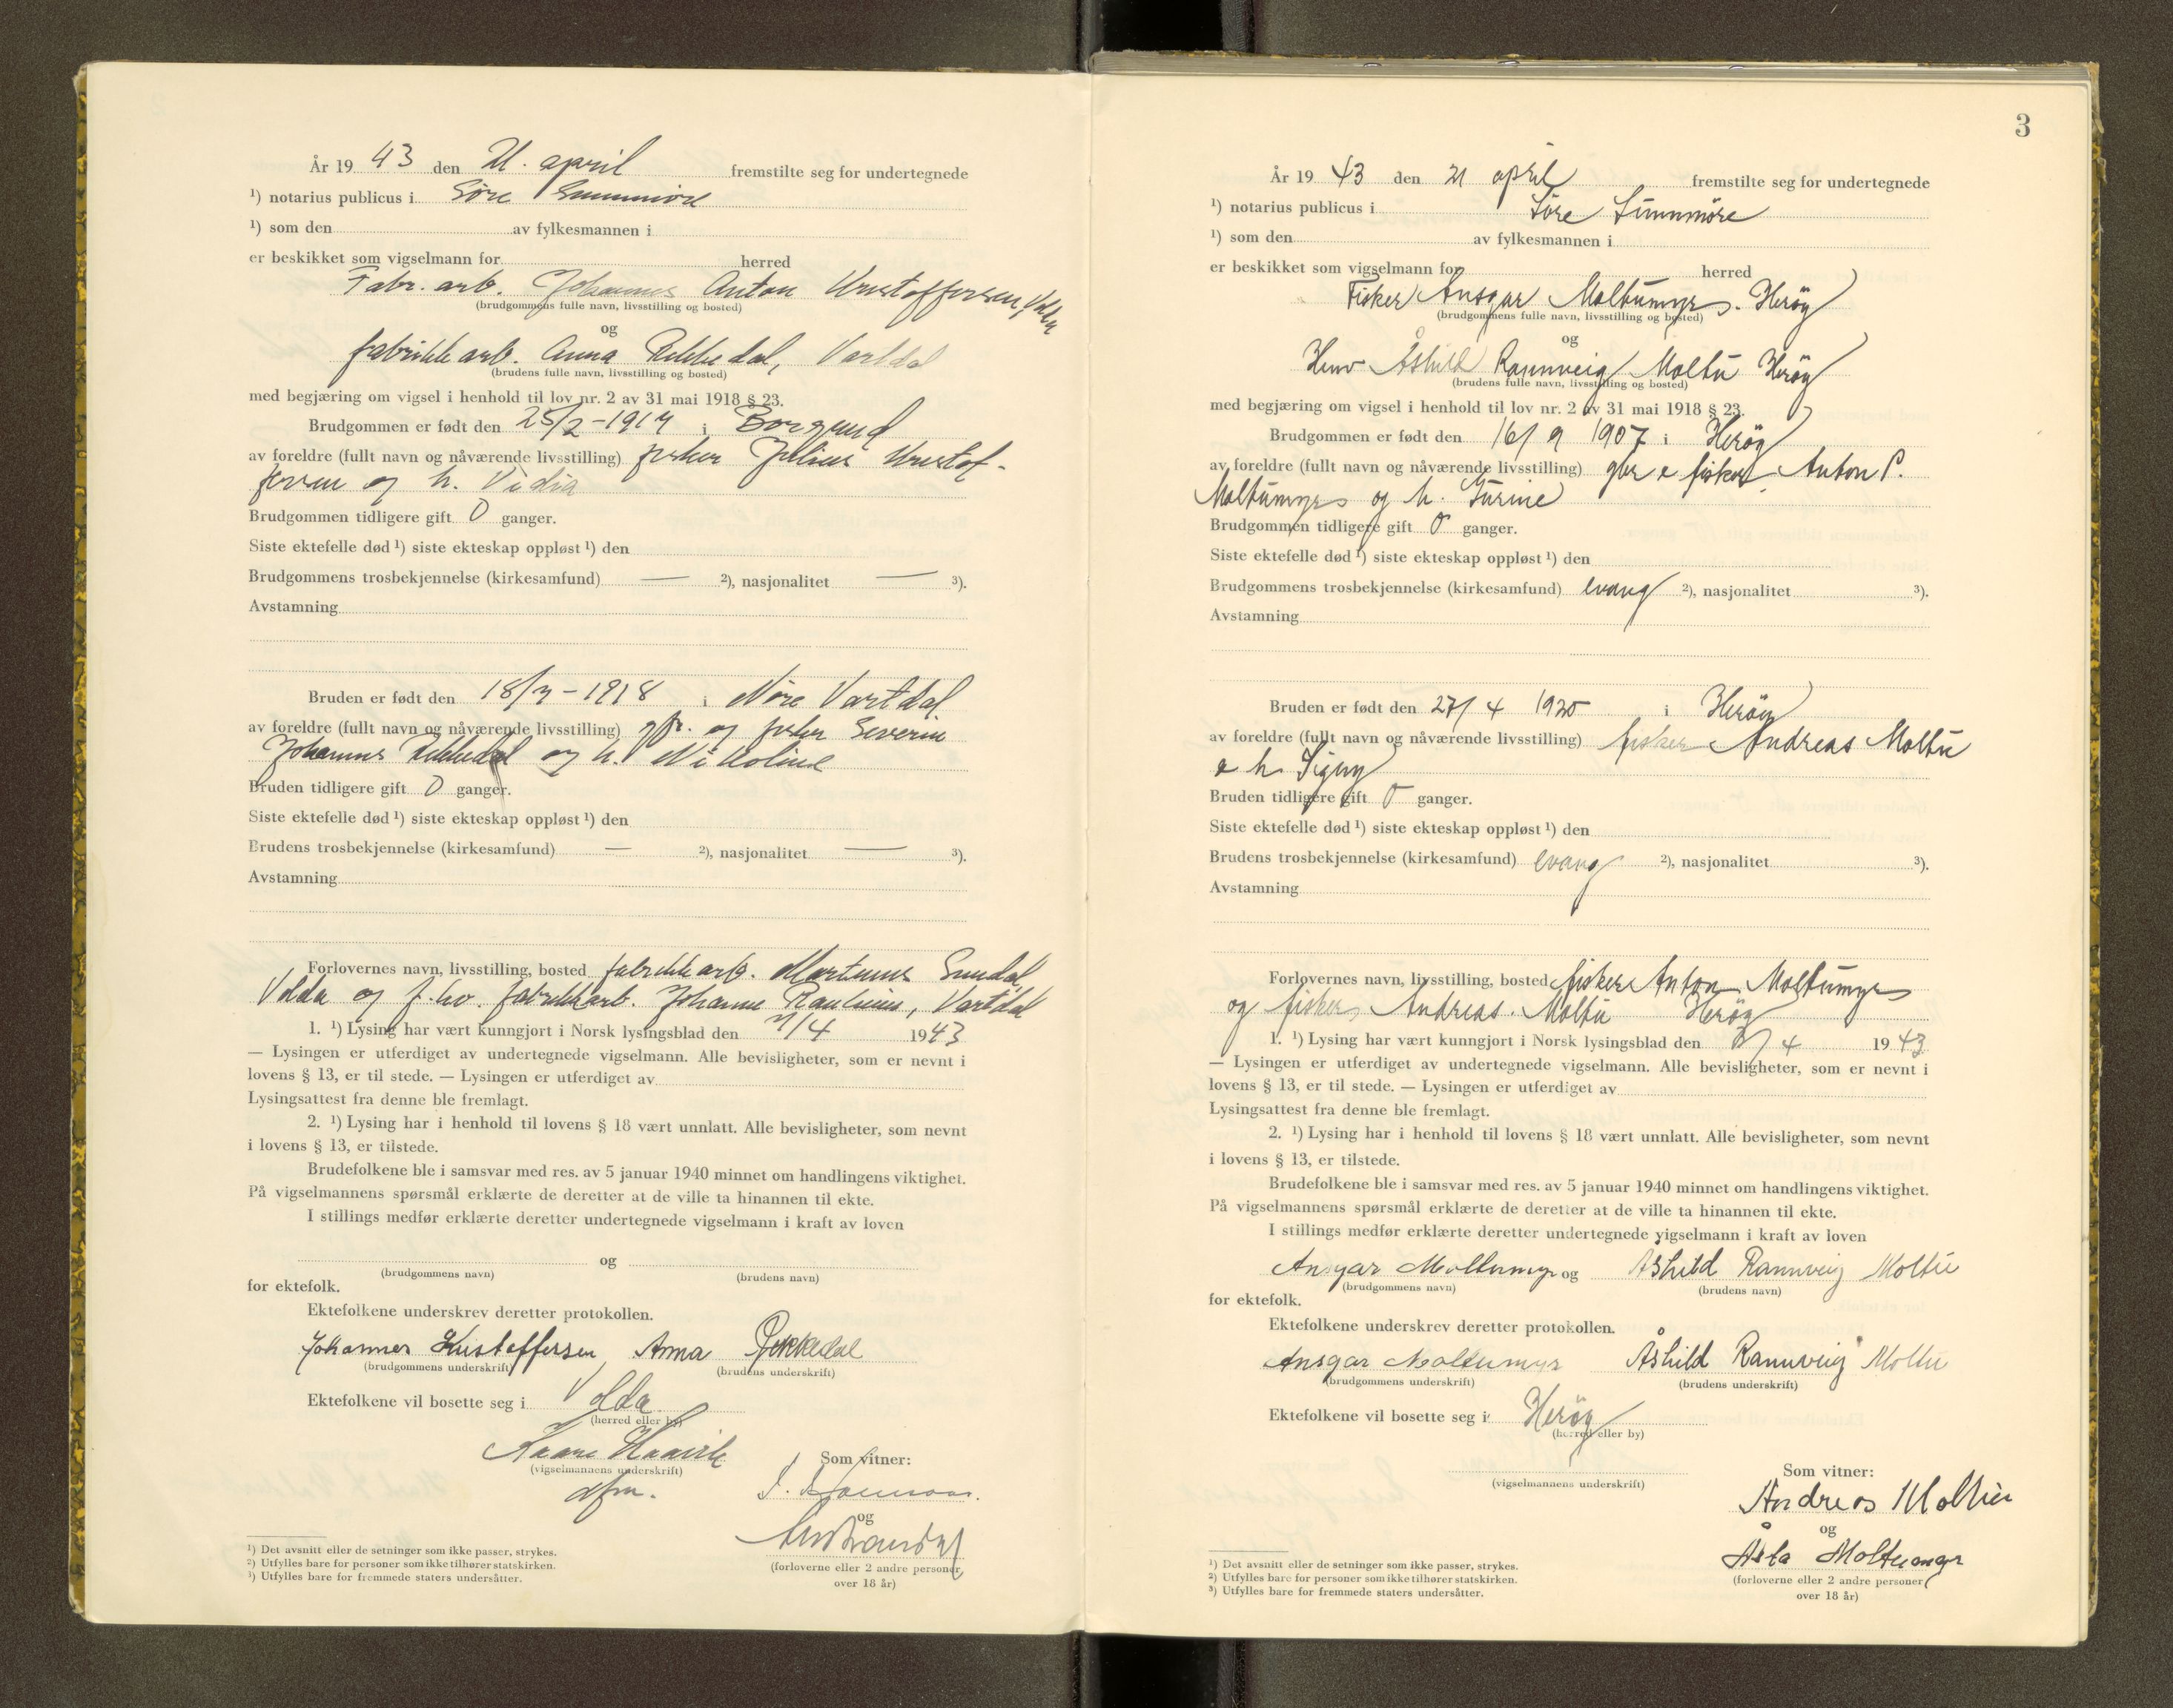 År 19 43 den 21. april fremstilte seg for undertegnede
¹) notarius publicus i Søre Sunnmøre
¹) som den av fylkesmannen i
er beskikket som vigselmann for herred
Fabr. arb. Johannes Anton Kristoffersen, Volda
(brudgommens fulle navn, livsstilling og bosted)
og
fabrikkarb. Anna Rekkedal, Vartdal
(brudens fulle navn, livsstilling og bosted)
med begjæring om vigsel i henhold til lov nr. 2 av 31 mai 1918 § 23.
Brudgommen er født den 25/2-1914 i Borgund
av foreldre (fullt navn og nåværende livsstilling) fisker Julius Kristof-
fersen og h. Vidia
Brudgommen tidligere gift 0 ganger.
Siste ektefelle død ¹) siste ekteskap oppløst ¹) den
Brudgommens trosbekjennelse (kirkesamfund) — ²), nasjonalitet — ³).
Avstamning
Bruden er født den 18/7-1918 i Nøre Vartdal
av foreldre (fullt navn og nåværende livsstilling) gbr. og fisker Severin
Johannes Rekkedal og h. Nikoline
Bruden tidligere gift 0 ganger.
Siste ektefelle død ¹) siste ekteskap oppløst ¹) den
Brudens trosbekjennelse (kirkesamfund) — ²), nasjonalitet — ³).
Avstamning
Forlovernes navn, livsstilling, bosted fabrikkarb. Martinus
Volda og fabrikkarb. Johanne Vartdal
1. ¹) Lysing har vært kunngjort i Norsk lysingsblad den /4 1943
— Lysingen er utferdiget av undertegnede vigselmann. Alle bevisligheter, som er nevnt i
lovens § 13, er til stede. — Lysingen er utferdiget av
Lysingsattest fra denne ble fremlagt.
2. ¹) Lysing har i henhold til lovens § 18 vært unnlatt. Alle bevisligheter, som nevnt
i lovens § 13, er tilstede.
Brudefolkene ble i samsvar med res. av 5 januar 1940 minnet om handlingens viktighet.
På vigselmannens spørsmål erklærte de deretter at de ville ta hinannen til ekte.
I stillings medfør erklærte deretter undertegnede vigselmann i kraft av loven
og
(brudgommens navn) (brudens navn)
for ektefolk.
Ektefolkene underskrev deretter protokollen.
Johannes Kristoffersen Anna Rekkedal
(brudgommens underskrift) (brudens underskrift)
Ektefolkene vil bosette seg i Volda
(herred eller by)
Kaare Haavik
(vigselmannens underskrift)
dfm.
Som vitner:
og
(forloverne eller 2 andre personer,
over 18 år)
¹) Det avsnitt eller de setninger som ikke passer, strykes.
²) Utfylles bare for personer som ikke tilhører statskirken.
³) Utfylles bare for fremmede staters undersåtter.
3
År 19 43 den 21 april fremstilte seg for undertegnede
¹) notarius publicus i Søre Sunnmøre
¹) som den av fylkesmannen i
er beskikket som vigselmann for herred
Fisker Ansgar Moltumyr. Herøy
(brudgommens fulle navn, livsstilling og bosted)
og
Åshild Rannveig Moltu Herøy
(brudens fulle navn, livsstilling og bosted)
med begjæring om vigsel i henhold til lov nr. 2 av 31 mai 1918 § 23.
Brudgommen er født den 16/9 1907 i Herøy
av foreldre (fullt navn og nåværende livsstilling) gbr & fisker Anton P.
Moltumyr og h. Turine
Brudgommen tidligere gift 0 ganger.
Siste ektefelle død ¹) siste ekteskap oppløst ¹) den
Brudgommens trosbekjennelse (kirkesamfund) evang ²), nasjonalitet ³).
Avstamning
Bruden er født den 27/4 1920 i Herøy
av foreldre (fullt navn og nåværende livsstilling) fisker Andreas Moltu
& h. Signy
Bruden tidligere gift 0 ganger.
Siste ektefelle død ¹) siste ekteskap oppløst ¹) den
Brudens trosbekjennelse (kirkesamfund) evang ²), nasjonalitet ³).
Avstamning
Forlovernes navn, livsstilling, bosted fisker Anton Moltumyr
og fisker Andreas Moltu Herøy
1. ¹) Lysing har vært kunngjort i Norsk lysingsblad den /4 1943
— Lysingen er utferdiget av undertegnede vigselmann. Alle bevisligheter, som er nevnt i
lovens § 13, er til stede. — Lysingen er utferdiget av
Lysingsattest fra denne ble fremlagt.
2. ¹) Lysing har i henhold til lovens § 18 vært unnlatt. Alle bevisligheter, som nevnt
i lovens § 13, er tilstede.
Brudefolkene ble i samsvar med res. av 5 januar 1940 minnet om handlingens viktighet.
På vigselmannens spørsmål erklærte de deretter at de ville ta hinannen til ekte.
I stillings medfør erklærte deretter undertegnede vigselmann i kraft av loven
Ansgar Moltumyr og Åshild Rannveig Moltu
(brudgommens navn) (brudens navn)
for ektefolk.
Ektefolkene underskrev deretter protokollen.
Ansgar Moltumyr Åshild Rannveig Moltu
(brudgommens underskrift) (brudens underskrift)
Ektefolkene vil bosette seg i Herøy
(herred eller by)
(vigselmannens underskrift)
Som vitner:
Andreas Moltu
og
Åsta Moltumyr
(forloverne eller 2 andre personer
over 18 år)
¹) Det avsnitt eller de setninger som ikke passer, strykes.
²) Utfylles bare for personer som ikke tilhører statskirken.
³) Utfylles bare for fremmede staters undersåtter.